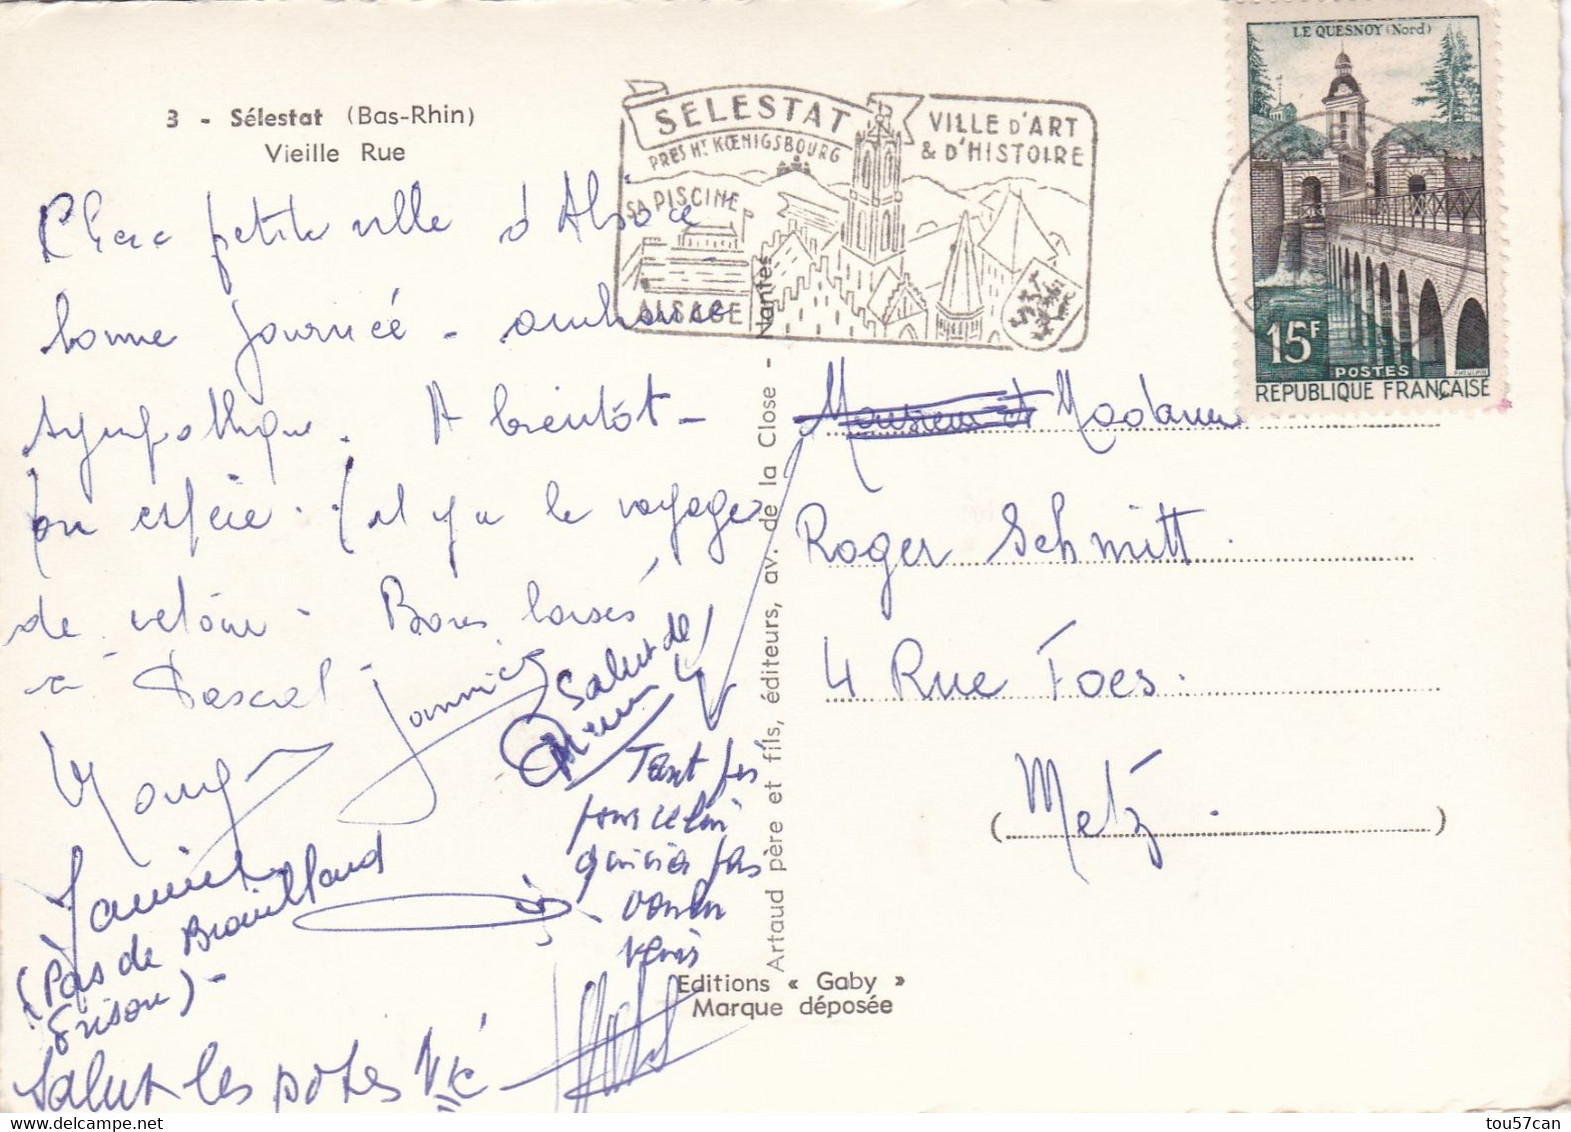 3 - Sélestat (Bas-Rhin)
Vieille Rue
SELESTAT
PRES HT KŒNIGSBOURG
VILLE D'ART
& D'HISTOIRE
SA PISCINE
ALSACE
LE QUESNOY (Nord)
15F
POSTES
REPUBLIQUE FRANÇAISE
petite ville d'Alsace
bonne journée - ambiance
sympathique. A bientôt -
on espère. (il y a le voyage
de retour - Bons baisés
à Pascal -
Yannick
Salut de
Tant pis
pour celui
qui n'a pas
voulu
venir
Yannick
(Pas de Brouilland
Grison) -
Salut les potes
Monsieur et Madame
Roger Schmitt.
4 Rue Foes.
(Metz.)
Artaud père et fils, éditeurs, av. de la Close - Nantes
Editions « Gaby »
Marque déposée
tou57can